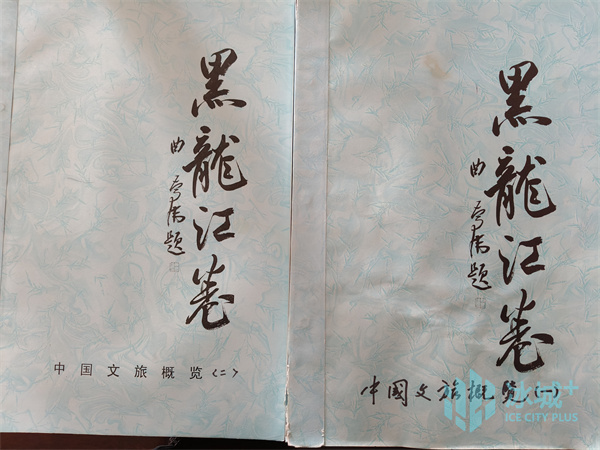 黑龙江卷
曲
题
中国文旅概览〈二〉
黑龙江卷
曲
题
中國文旅概览(一)
冰城+
ICE CITY PLUS